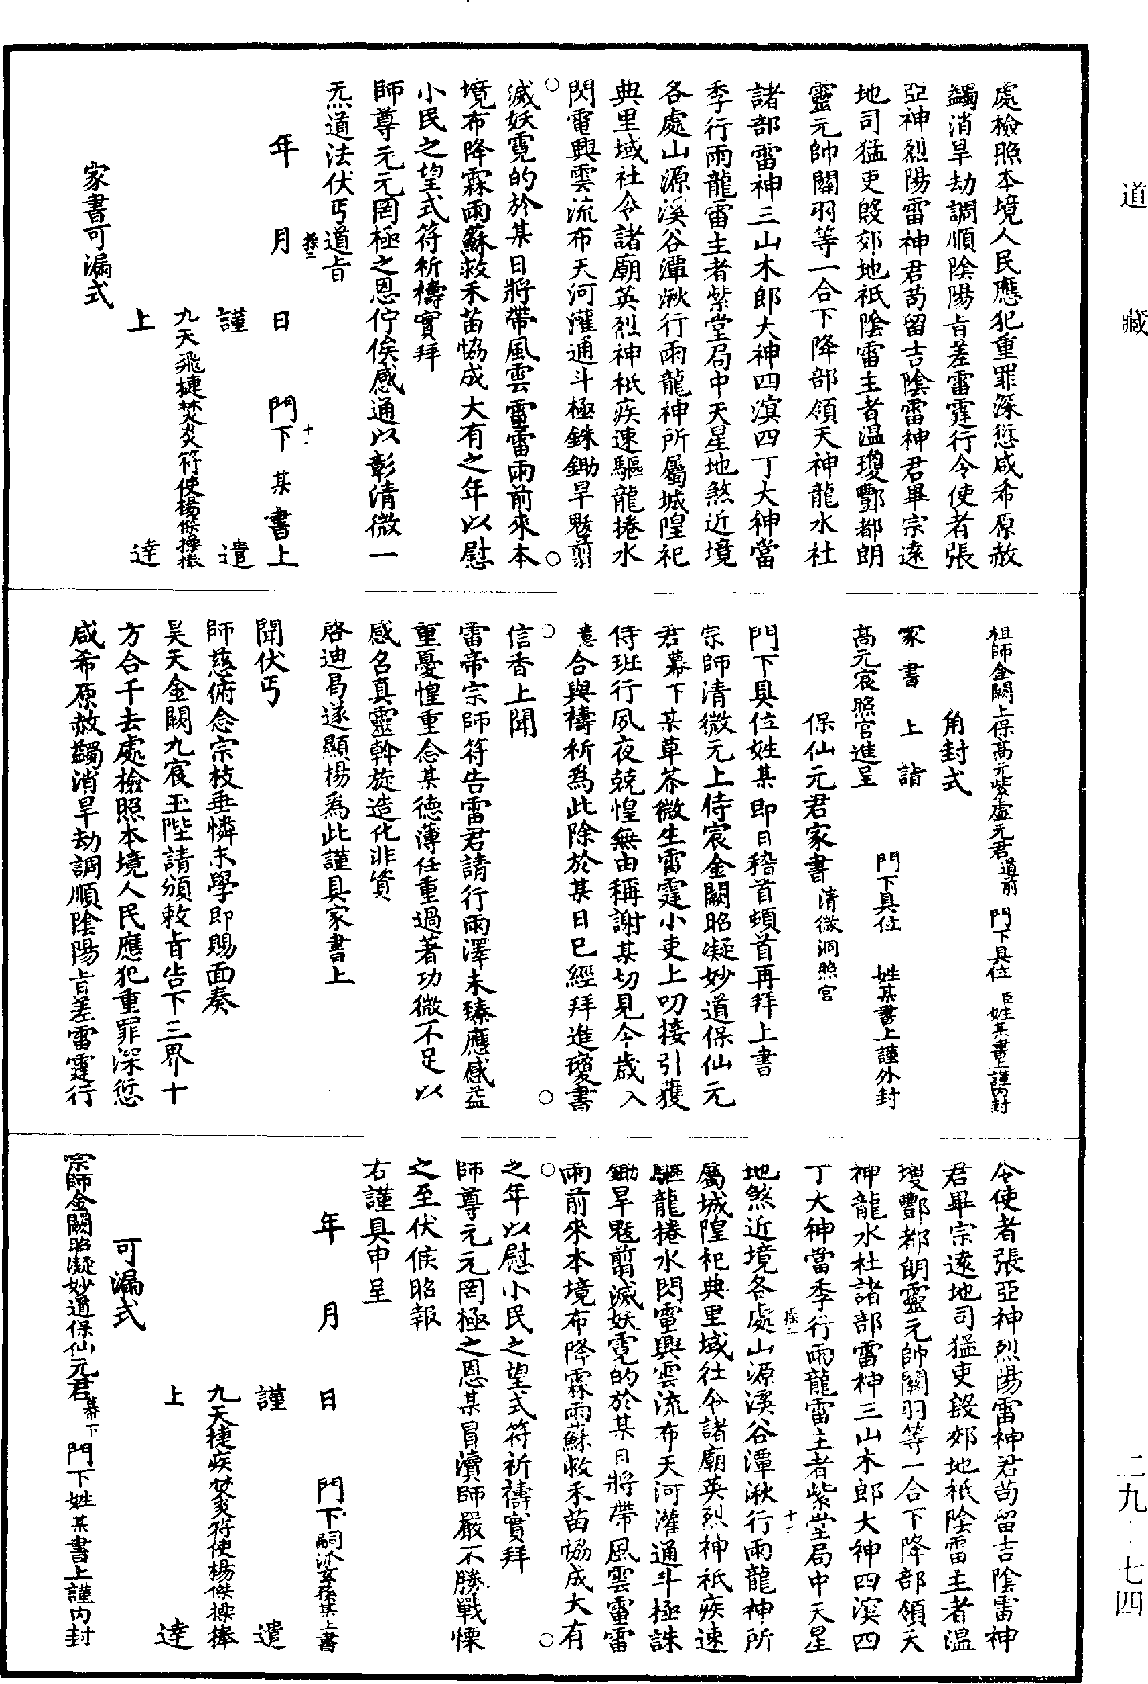 道藏
二九·七四
處檢照本境人民應犯重罪深愆咸希原赦
蠲消旱劫調順陰陽旨差雷霆行令使者張
亞神烈陽雷神君苟留吉陰雷神君畢宗遠
地司猛吏殷郊地祇陰雷主者溫瓊酆都朗
靈元帥關羽等一合下降部領天神龍水社
諸部雷神三山木郎大神四溟四丁大神當
季行雨龍雷主者紫堂局中天星地煞近境
各處山源溪谷潭湫行雨龍神所屬城隍祀
典里域社令諸廟英烈神祇疾速驅龍捲水
閃電興雲流布天河灌通斗極銖鋤旱魃翦
滅妖霓的於某日將帶風雲雷雷雨前來本
境布降霖雨蘇救禾苗恊成大有之年以慰
小民之望式符祈禱實拜
師尊元元罔極之恩佇俟感通以彰清微一
炁道法伏丐道旨
年 月 日 門下某書上
謹 遣
九天飛捷焚炎符使楊傑操
上 達
家書可漏式
祖師金闕上保高元紫虛元君道前 門下具位 臣姓某書上謹內封
角封式
家書 上 請
高元宸照宮進呈 門下具位 姓某書上謹外封
保仙元君家書 清微洞照宮
門下具位姓某即日稽首頓首再拜上書
宗師清微元上侍宸金闕昭凝妙道保仙元
君幕下某草芥微生雷霆小吏上叨接引獲
侍班行夙夜兢惶無由稱謝某切見今歲入
意合與禱祈為此除於某日已經拜進瓊書
信香上聞
雷帝宗師符告雷君請行雨澤未臻應感益
重憂惶重念某德薄任重過著功微不足以
感名真靈斡旋造化非資
啓迪曷遂顯揚為此謹具家書上
聞伏丐
師慈俯念宗枝垂憐末學即賜面奏
昊天金闕九宸玉陛請頒敕旨告下三界十
方合干去處檢照本境人民應犯重罪深愆
咸希原赦蠲消旱劫調順陰陽旨差雷霆行
令使者張亞神烈陽雷神君苟留吉陰雷神
君畢宗遠地司猛吏殷郊地祇陰雷主者溫
瓊酆都朗靈元帥關羽等一合下降部領天
神龍水社諸部雷神三山木郎大神四溟四
丁大神當季行雨龍雷主者紫堂局中天星
地煞近境各處山源溪谷潭湫行雨龍神所
屬城隍祀典里域社令諸廟英烈神祇疾速
驅龍捲水閃電興雲流布天河灌通斗極誅
鋤旱魃翦滅妖霓的於某日將帶風雲雷雷
雨前來本境布降霖雨蘇救禾苗恊成大有
之年以慰小民之望式符祈禱實拜
師尊元元罔極之恩某冒瀆師嚴不勝戰慄
之至伏候昭報
右謹具申呈
年 月 日 門下嗣派玄孫某上書
謹 遣
九天捷疾焚炎符使楊傑捧
上 達
可漏式
宗師金闕昭凝妙道保仙元君幕下 門下姓某書上謹內封